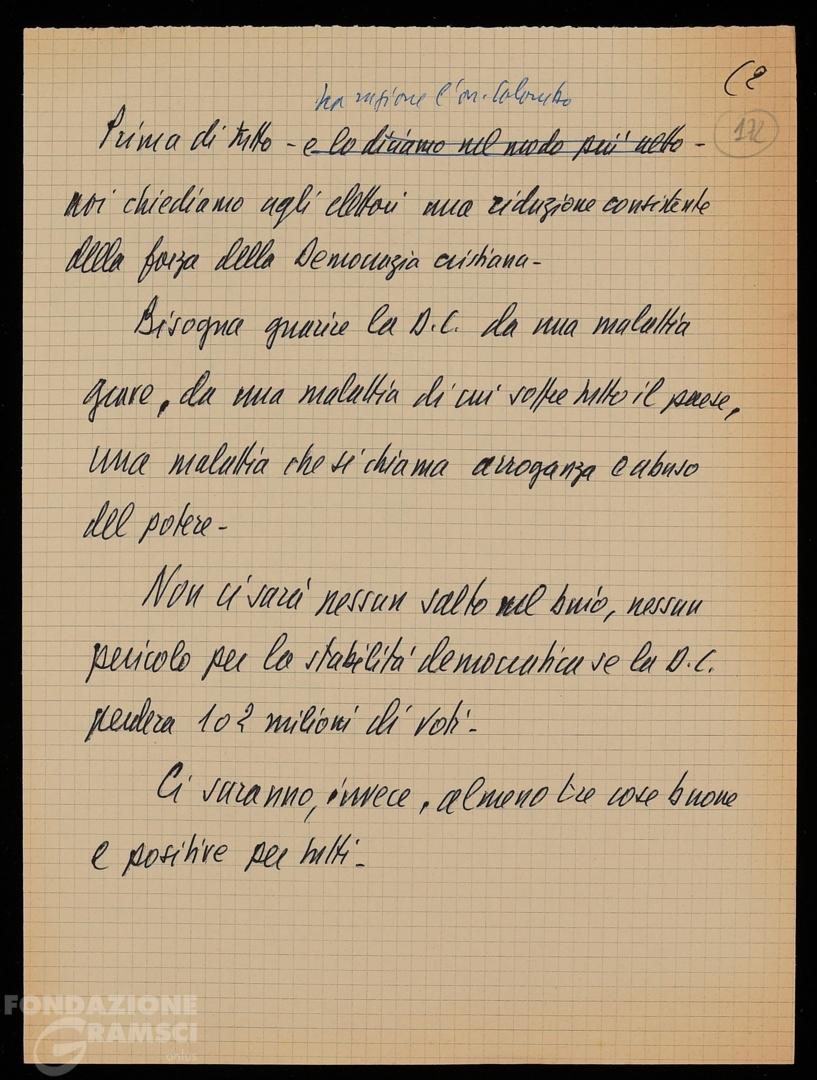 (2
172
ha ragione l'on. Colombo
Prima di tutto - e lo diciamo nel modo più netto -
noi chiediamo agli elettori una riduzione consistente
della forza della Democrazia cristiana -
Bisogna guarire la D.C. da una malattia
grave, da una malattia di cui soffre tutto il paese,
una malattia che si chiama arroganza e abuso
del potere -
Non ci sarà nessun salto nel buio, nessun
pericolo per la stabilità democratica se la D.C.
perderà 1 o 2 milioni di voti -
Ci saranno, invece, almeno tre cose buone
e positive per tutti -
FONDAZIONE
GRAMSCI
onlus